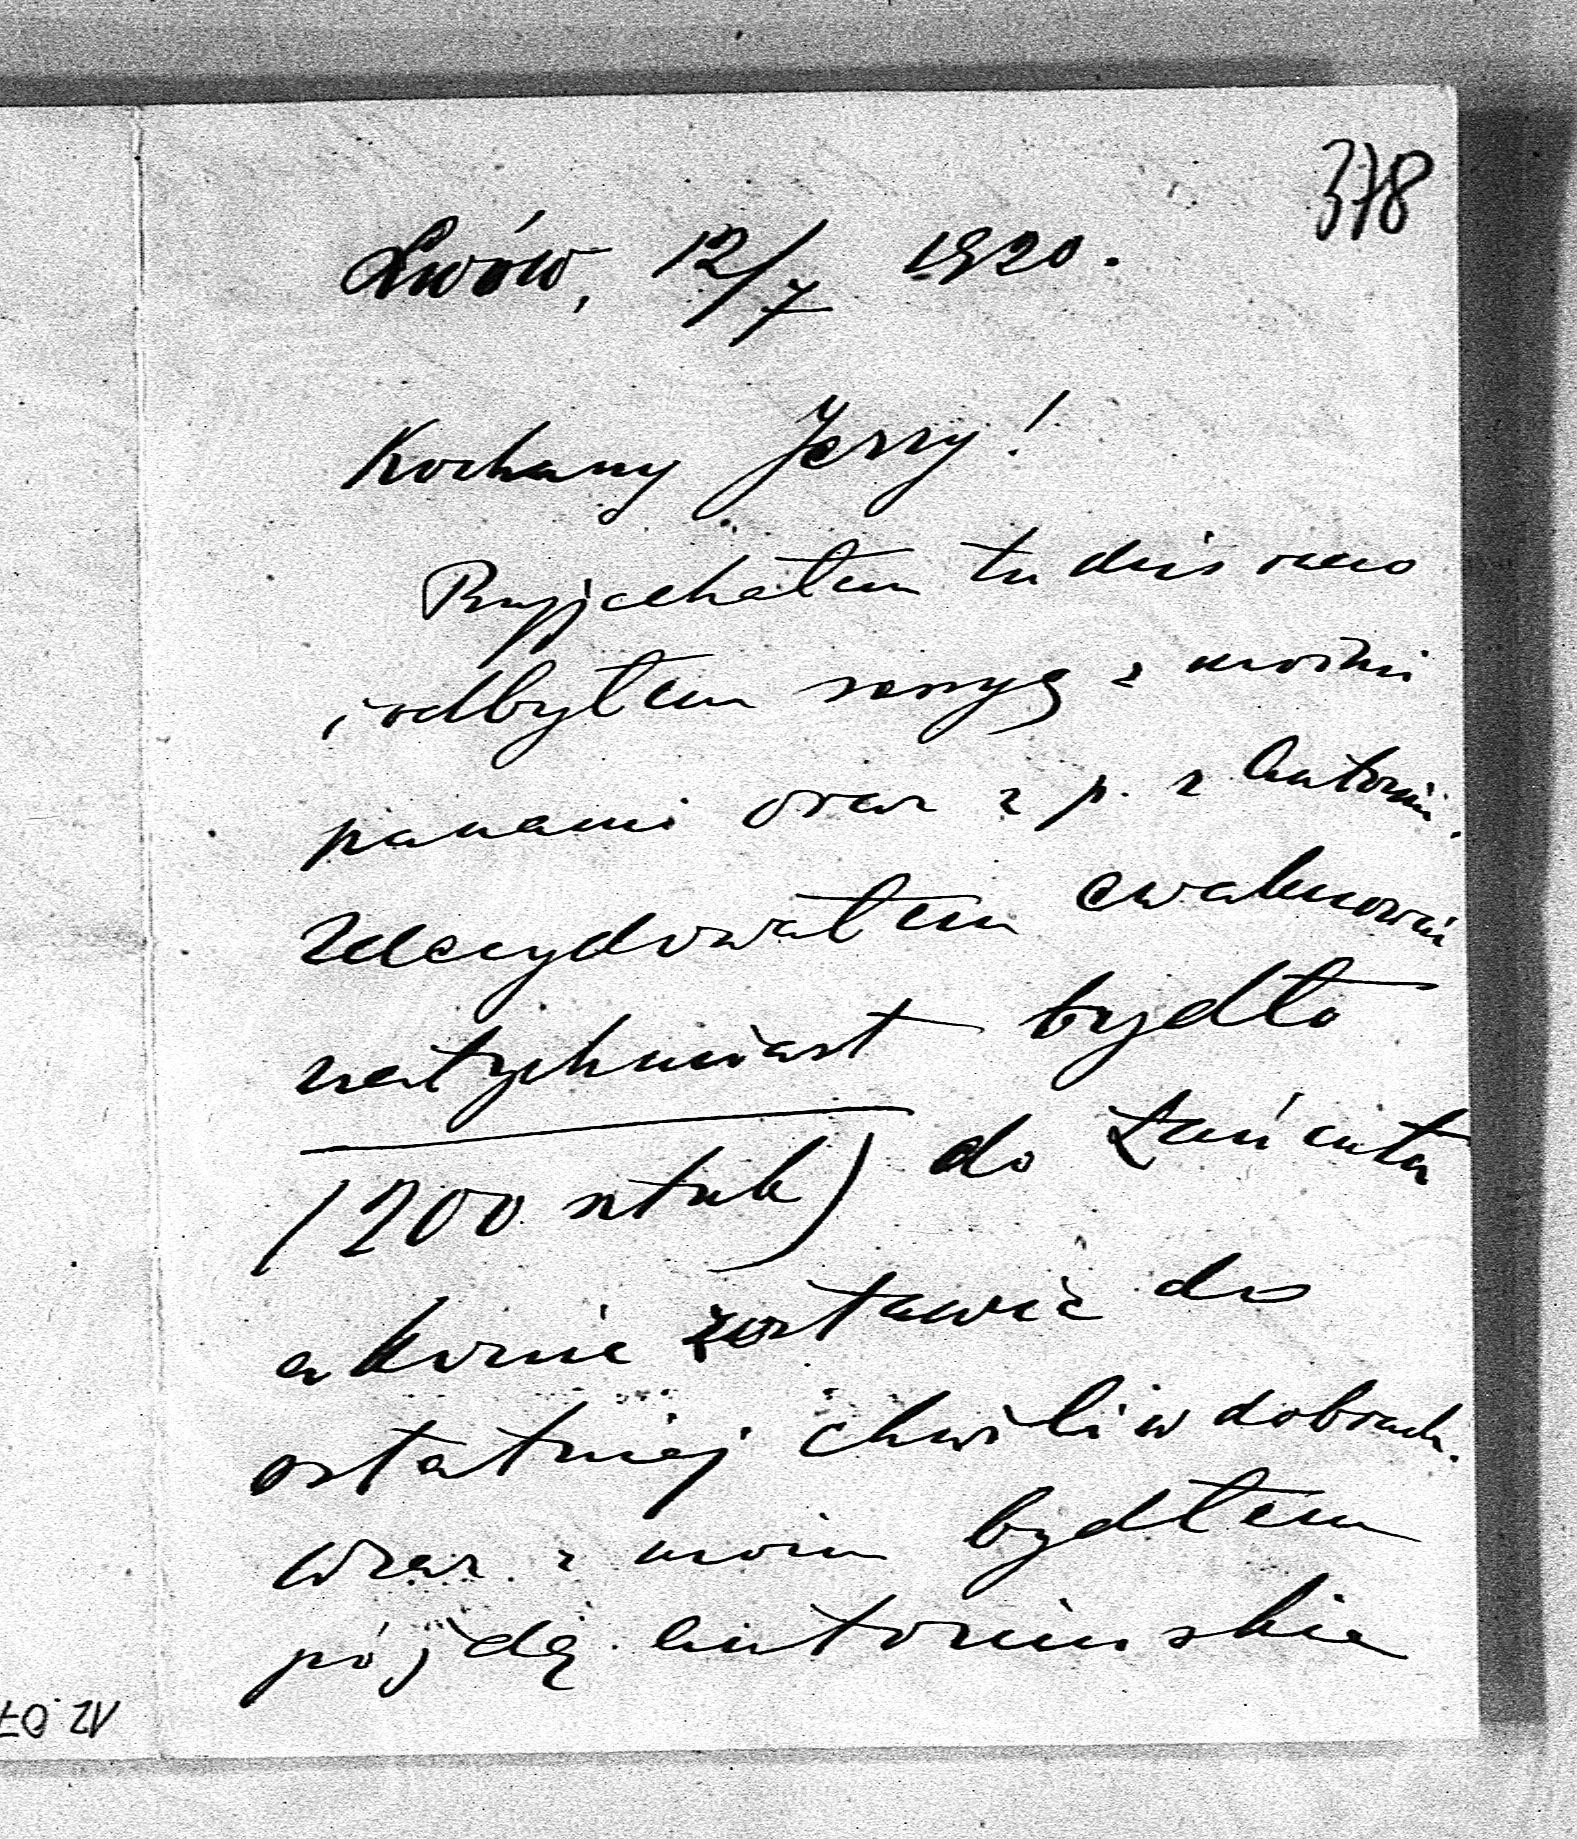 378
Lwów, 12/7 1920.
Kochany Jerzy!
Przyjechałem tu dziś rano
i odbyłem sesyę z moimi
panami oraz z p. z Antonin.
Zdecydowałem ewakuować
natychmiast bydło
(200 sztuk) do Łańcuta
a konie zostawić do
ostatniej chwili w dobrach.
Wraz z moim bydłem
pójdą antonińskie